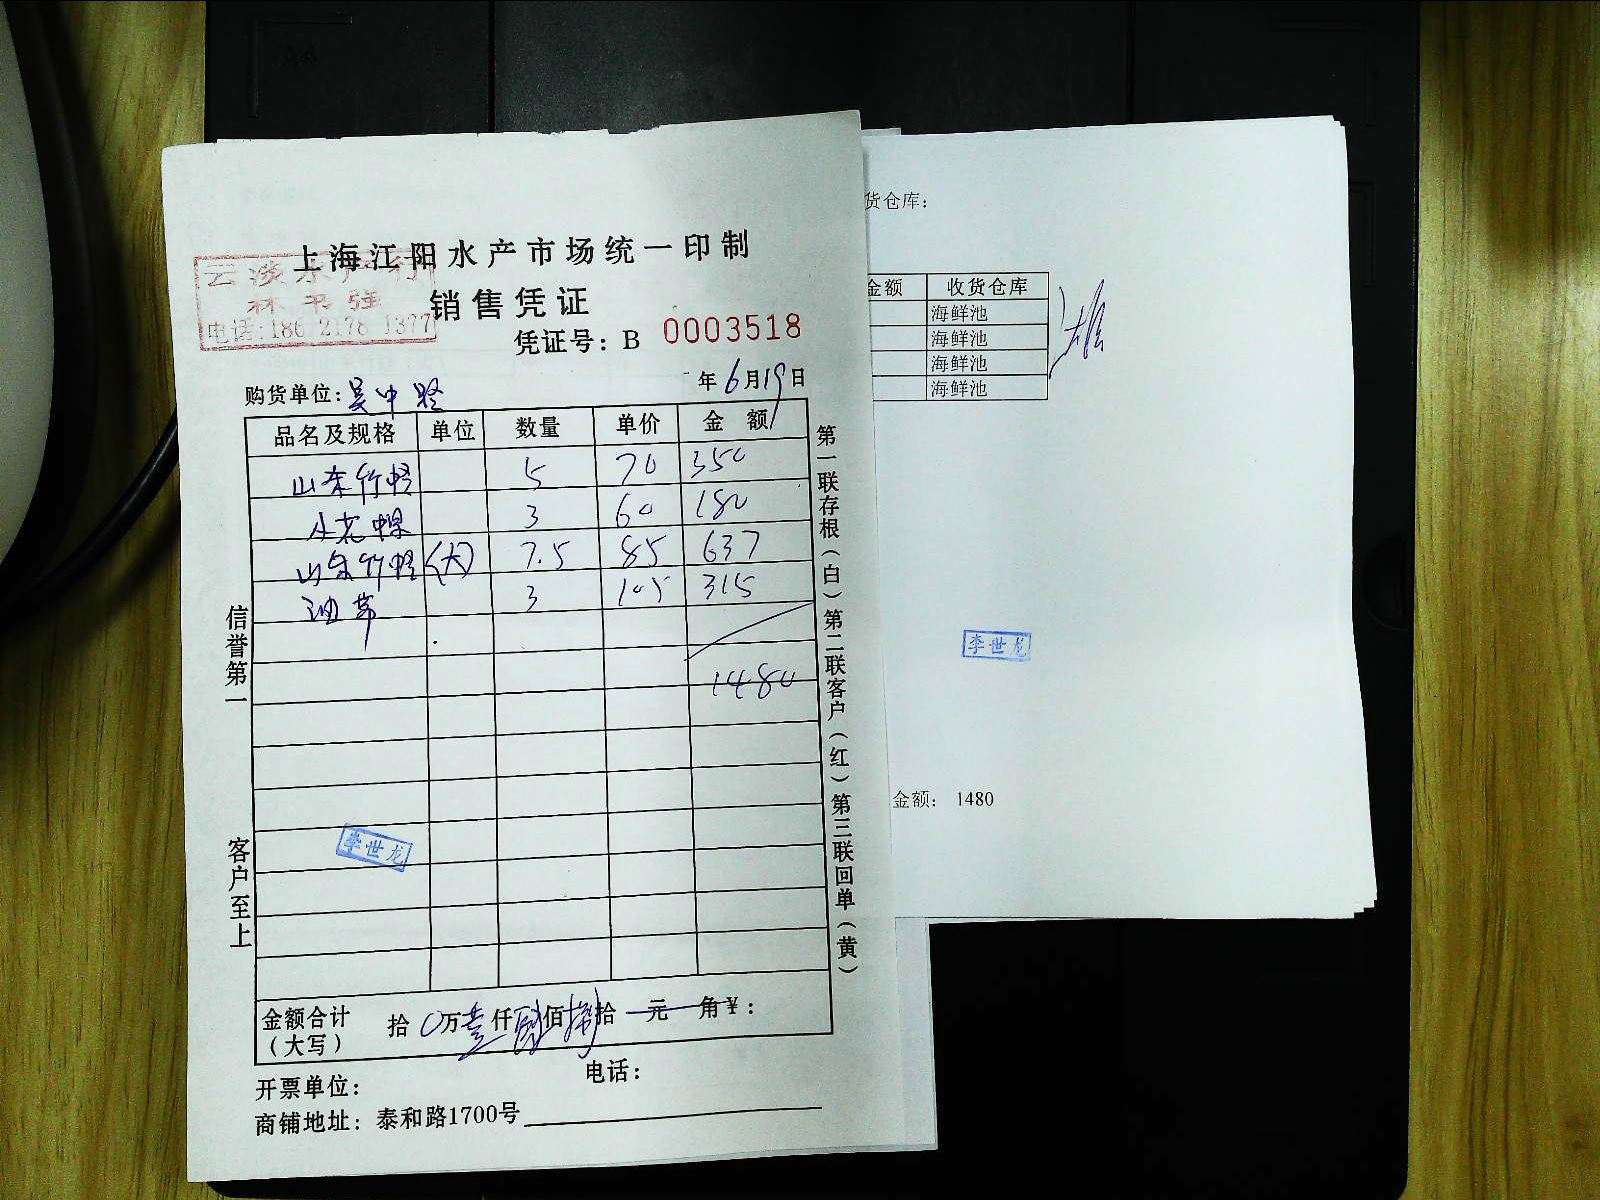 上海江阳水产市场统一印制
云淡水产行
林书强
电话:186 2178 1377
销售凭证
凭证号：B 0003518
购货单位: 年6月19日
品名及规格 单位 数量 单价 金额
山东竹蛏 5 70 350
3 60 180
山东竹蛏 (大) 7.5 85 637
油 3 105 315
1480
李世龙
金额合计 拾 0万壹仟肆佰捌拾 元 角¥：
（大写）
开票单位： 电话：
商铺地址：泰和路1700号
信誉第一
客户至上
第一联存根（白）第二联客户（红）第三联回单（黄）
货仓库：
金额 收货仓库
海鲜池
海鲜池
海鲜池
海鲜池
李世龙
金额： 1480